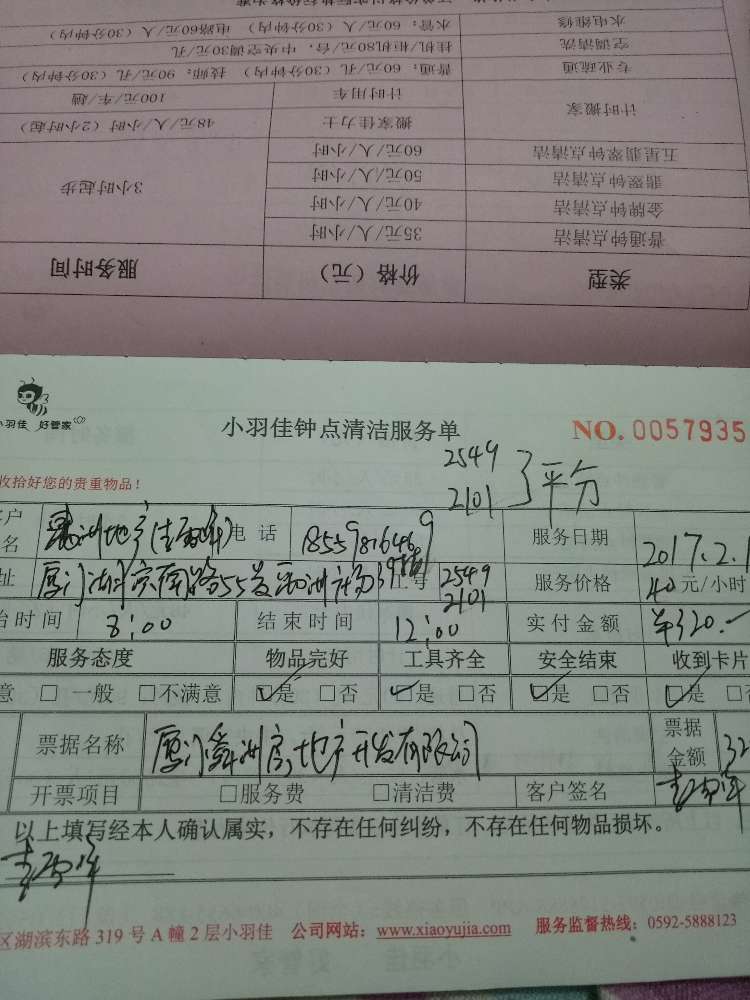 水电维修 水管：60元/人（30分钟内） 电路60元/人（30分钟内）
空调清洗 挂机/柜机80元/台，中央空调30元/孔
专业疏通 普通：60元/孔（30分钟内） 技师：90元/孔（30分钟内）
计时搬家 计时用车 100元/车/趟
搬家佳力士 48元/人/小时（2小时起）
五星翡翠钟点清洁 60元/人/小时
翡翠钟点清洁 50元/人/小时 3小时起步
金牌钟点清洁 40元/人/小时
普通钟点清洁 35元/人/小时
类型 价格（元） 服务时间
小羽佳 好管家
小羽佳钟点清洁服务单 NO. 0057935
2549
2101 平分
收拾好您的贵重物品！
客户
名 电话 服务日期 2017.2.1
址 厦门 工号 2549 2101 服务价格 40元/小时
始时间 8:00 结束时间 12:00 实付金额 ¥320.-
服务态度 物品完好 工具齐全 安全结束 收到卡片
意 □一般 □不满意 ☑是 □否 ☑是 □否 ☑是 □否 ☑是 □否
票据名称 厦门舜洲房地产开发有限公司 票据金额 32
开票项目 □服务费 □清洁费 客户签名
以上填写经本人确认属实，不存在任何纠纷，不存在任何物品损坏。
区湖滨东路319号A幢2层小羽佳 公司网站：www.xiaoyujia.com 服务监督热线：0592-5888123